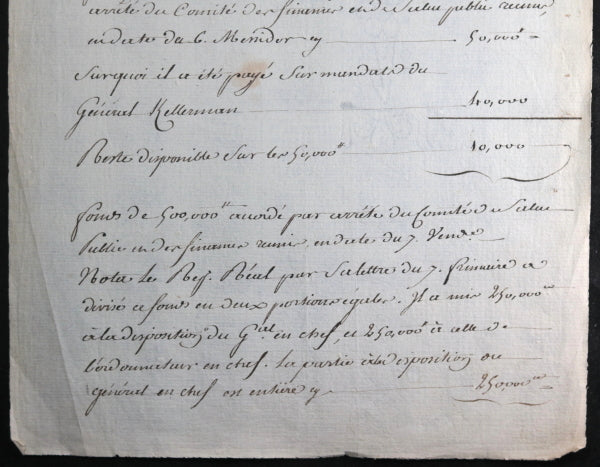 arrêté du Comité des finances et de Salut public réunis,
en date du 6. Messidor cy 50,000ᵗᵗ
Surquoi il a été payé Sur mandats du
Général Kellerman 40,000
Reste disponible Sur les 50,000ᵗᵗ 10,000
fonds de 500,000ᵗᵗ accordé par arrêté du Comité de Salut
Public et des finances reunis, en date du 7. Vendre
Nota Le Rep. Réal par Sa lettre du 7. frimaire a
divisé ce fonds en deux portions égales. Il a mis 250,000ᵗᵗ
à la disposition du Gᵃˡ en chef, et 250,000ᵗᵗ à celle de
l'ordonnateur en chef. La partie à la disposition du
général en chef est entière cy 250,000ᵗᵗ